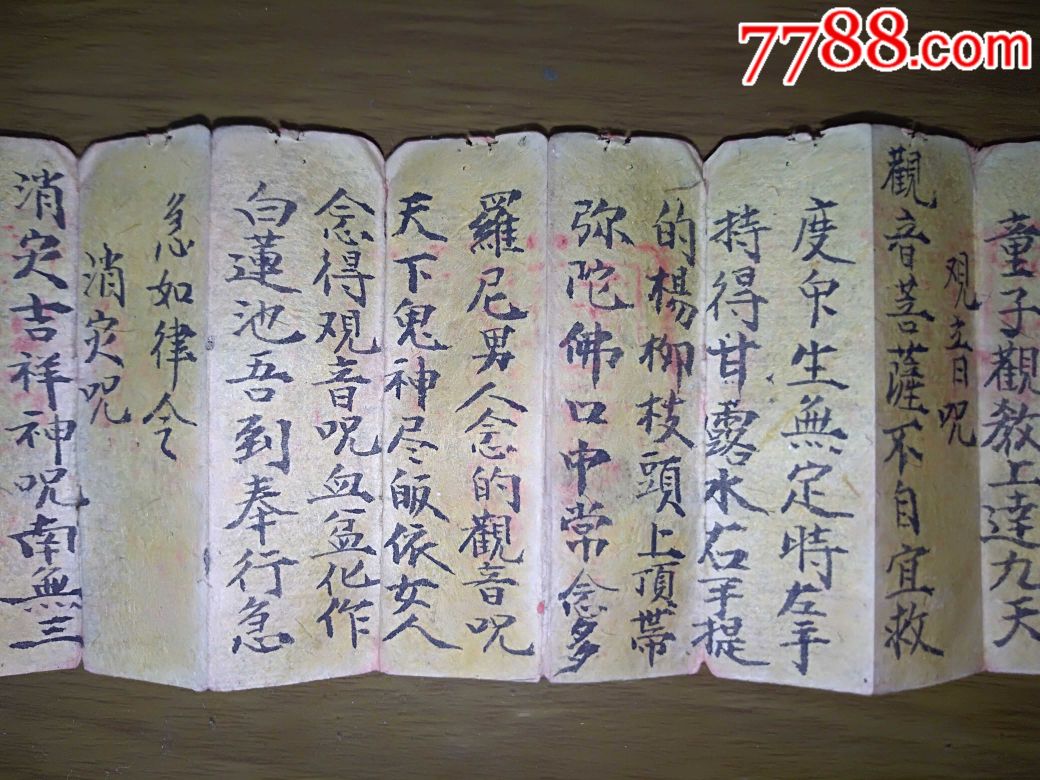 7788.com
童子觀教上達九天
观音咒
觀音菩薩不自宜救
度众生無定時左手
持得甘露水右手提
的楊柳枝頭上頂帶
弥陀佛口中常念多
羅尼男人念的觀音呪
天下鬼神尽皈依女人
念得观音呪血盆化作
白蓮池吾到奉行急
急如律令
消灾呪
消灾吉祥神呪南無三